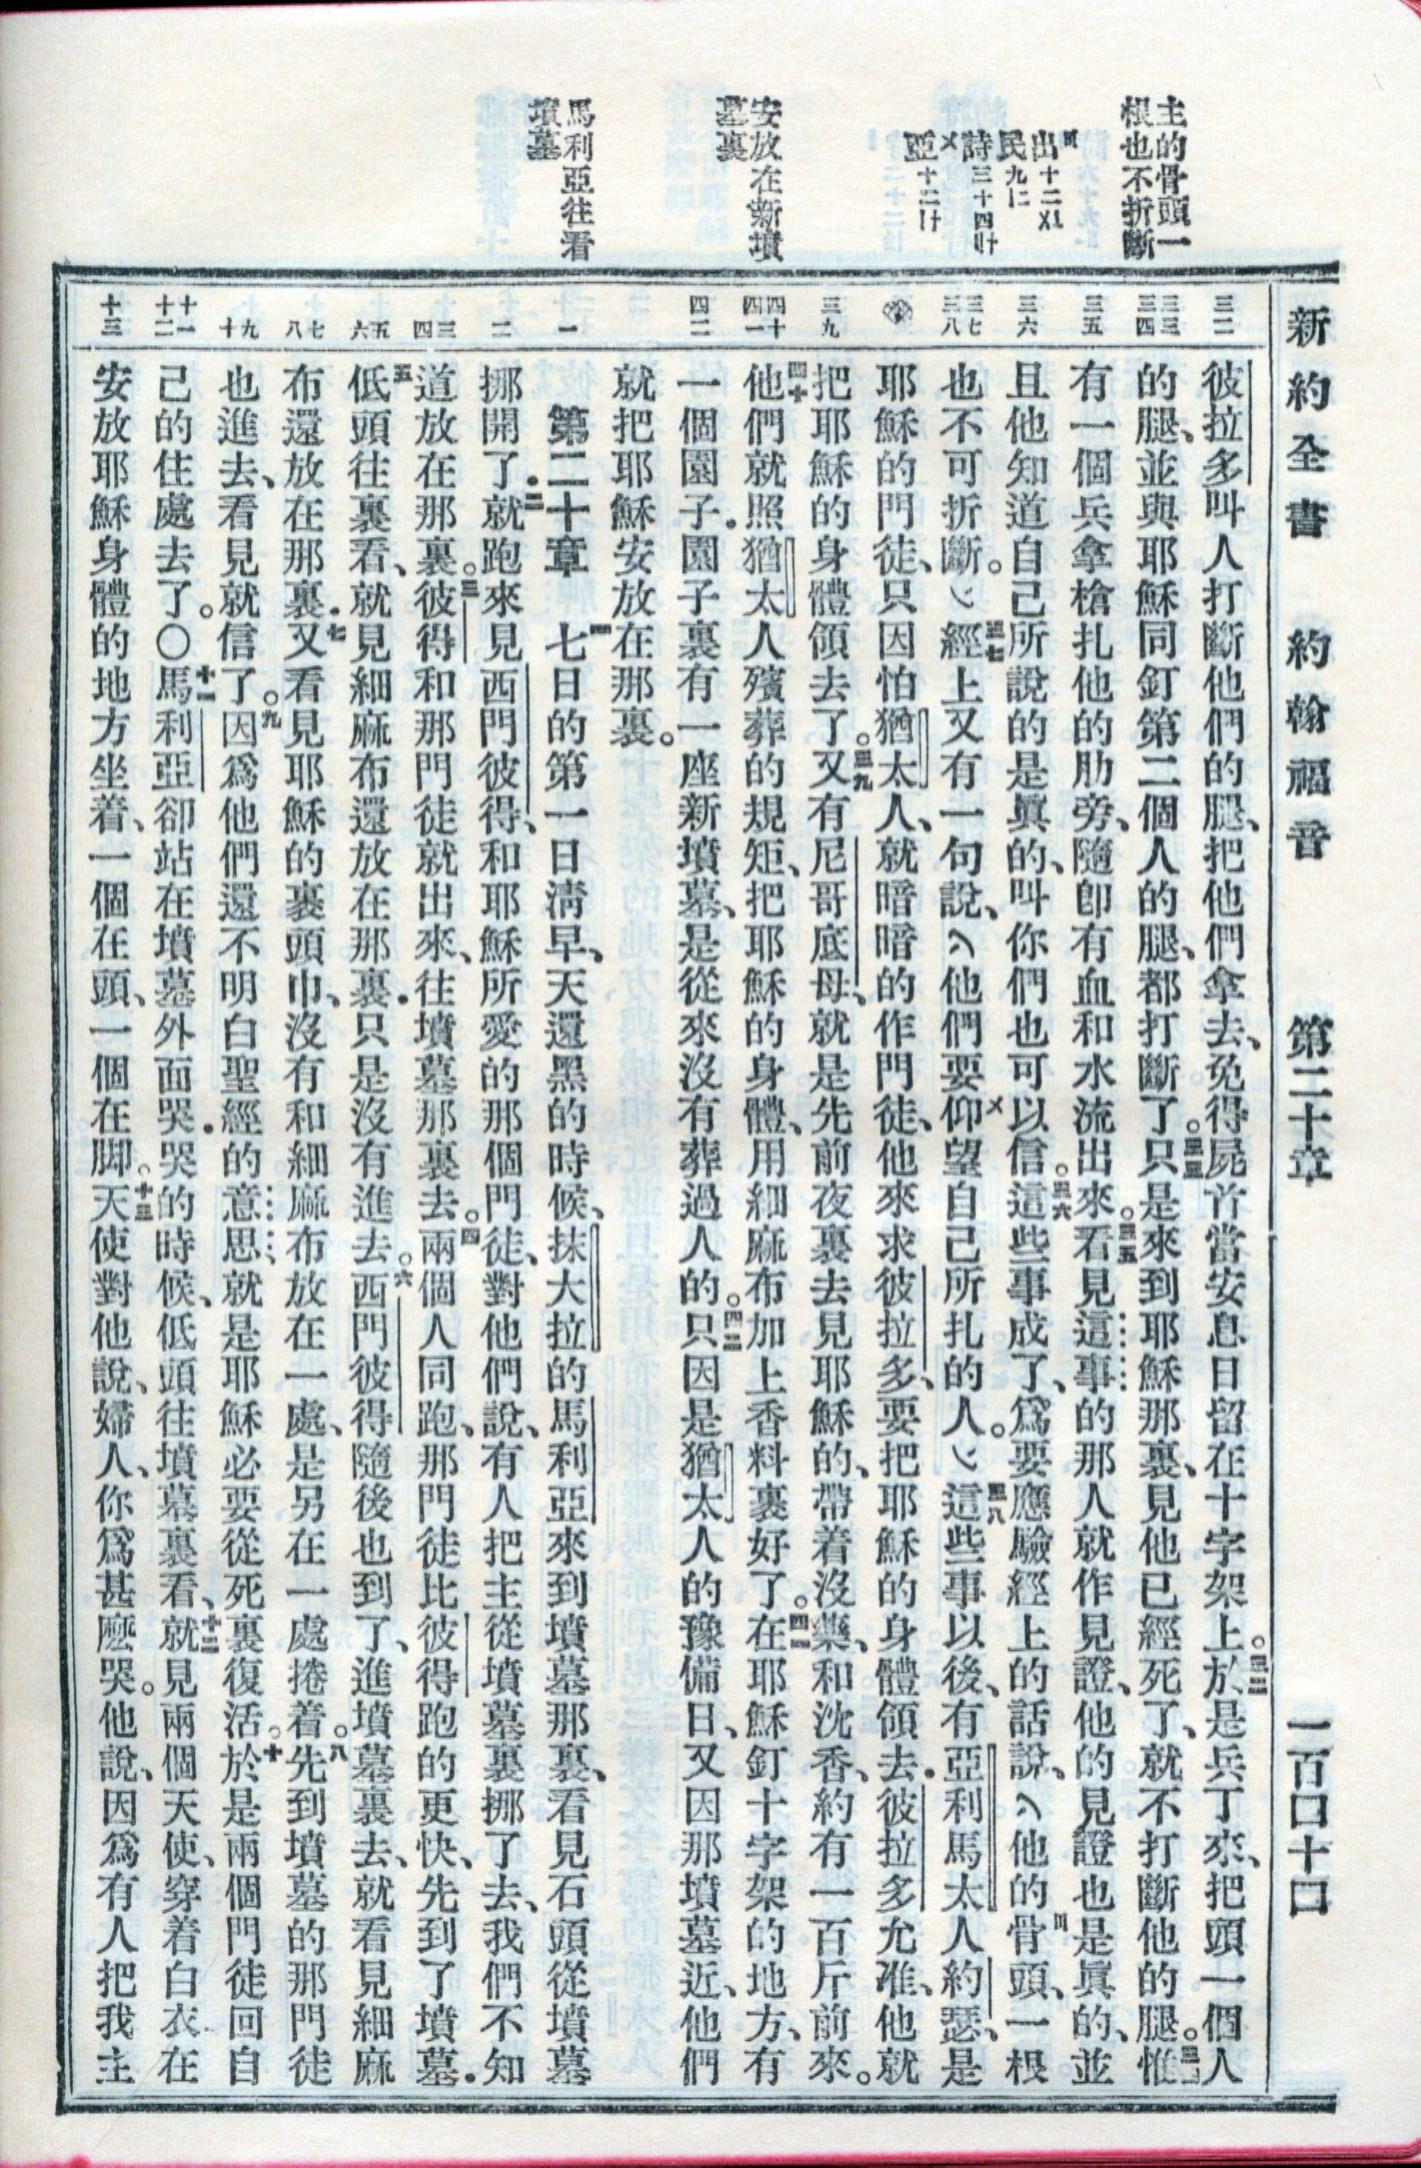 新約全書 約翰福音 第二十章 一百口十口
主的骨頭一
根也不折斷
出十二
民九
詩三十四
亞十二
安放在新墳
墓裏
馬利亞往看
墳墓
三二
三三
三四
三五
三六
三七
三八
三九
四十
四一
四二
一
二
三
四
五
六
七
八
九
十
十一
十二
十三
彼拉多叫人打斷他們的腿、把他們拿去、免得屍首當安息日留在十字架上。三二於是兵丁來、把頭一個人
的腿、並與耶穌同釘第二個人的腿、都打斷了。三三只是來到耶穌那裏、見他已經死了、就不打斷他的腿。三四惟
有一個兵拿槍扎他的肋旁、隨卽有血和水流出來。三五看見這事的那人就作見證、他的見證也是眞的、並
且他知道自己所說的是眞的、叫你們也可以信。三六這些事成了、爲要應驗經上的話說、他的骨頭、一根
也不可折斷。三七經上又有一句說、他們要仰望自己所扎的人。三八這些事以後、有亞利馬太人約瑟、是
耶穌的門徒、只因怕猶太人、就暗暗的作門徒、他來求彼拉多、要把耶穌的身體領去．彼拉多允准、他就
把耶穌的身體領去了。三九又有尼哥底母、就是先前夜裏去見耶穌的、帶着沒藥、和沈香、約有一百斤前來。
四十他們就照猶太人殯葬的規矩、把耶穌的身體、用細麻布加上香料裹好了。四一在耶穌釘十字架的地方、有
一個園子．園子裏有一座新墳墓、是從來沒有葬過人的。四二只因是猶太人的豫備日、又因那墳墓近、他們
就把耶穌安放在那裏。
第二十章 一七日的第一日淸早、天還黑的時候、抹大拉的馬利亞來到墳墓那裏、看見石頭從墳墓
挪開了．二就跑來見西門彼得、和耶穌所愛的那個門徒、對他們說、有人把主從墳墓裏挪了去、我們不知
道放在那裏。三彼得和那門徒就出來、往墳墓那裏去。四兩個人同跑、那門徒比彼得跑的更快、先到了墳墓．
五低頭往裏看、就見細麻布還放在那裏．只是沒有進去。六西門彼得隨後也到了、進墳墓裏去、就看見細麻
布還放在那裏．七又看見耶穌的裹頭巾、沒有和細麻布放在一處、是另在一處捲着。八先到墳墓的那門徒
也進去、看見就信了。九因爲他們還不明白聖經的意思、就是耶穌必要從死裏復活。十於是兩個門徒回自
己的住處去了。〇十一馬利亞卻站在墳墓外面哭．哭的時候、低頭往墳墓裏看、十二就見兩個天使、穿着白衣、在
安放耶穌身體的地方坐着、一個在頭、一個在脚。十三天使對他說、婦人、你爲甚麽哭。他說、因爲有人把我主